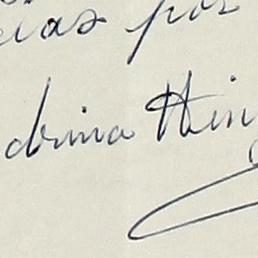 cias por
drina Hin